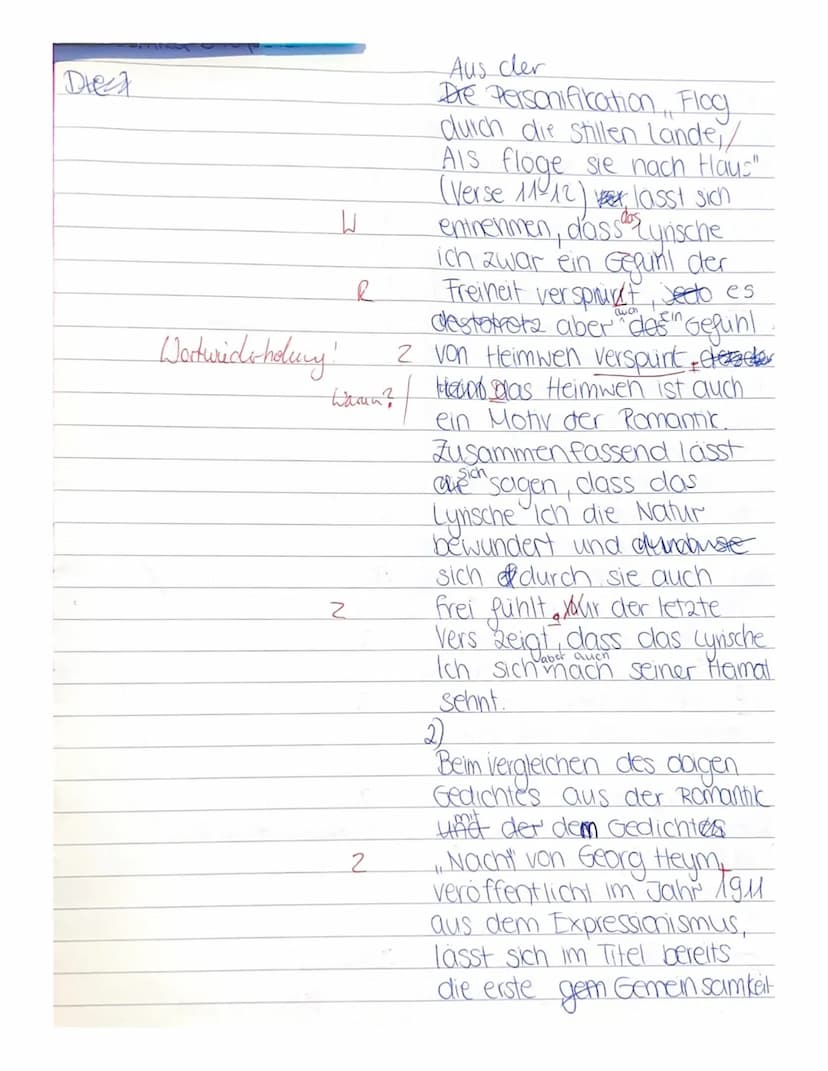 Aus der
Die Personifikation „Flog
durch die stillen Lande, /
Als flöge sie nach Haus"
(Verse 11-12) lässt sich
W entnehmen, dass das Lyrische
ich zwar ein Gefühl der
R Freiheit verspürt, jedo es
destotrotz aber auch das ein Gefühl
Wortwiederholung! Z von Heimweh verspürt.
Warum? / das Heimweh ist auch
ein Motiv der Romantik.
Zusammenfassend lässt
sich sagen, dass das
Lyrische Ich die Natur
bewundert und
sich durch sie auch
Z frei fühlt. Nur der letzte
Vers zeigt, dass das Lyrische
Ich sich aber auch nach seiner Heimat
sehnt.
2)
Beim vergleichen des obigen
Gedichtes aus der Romantik
mit der dem Gedichtes
Z „Nacht" von Georg Heym,
veröffentlicht im Jahr 1911
aus dem Expressionismus,
lässt sich im Titel bereits
die erste gem Gemeinsamkeit